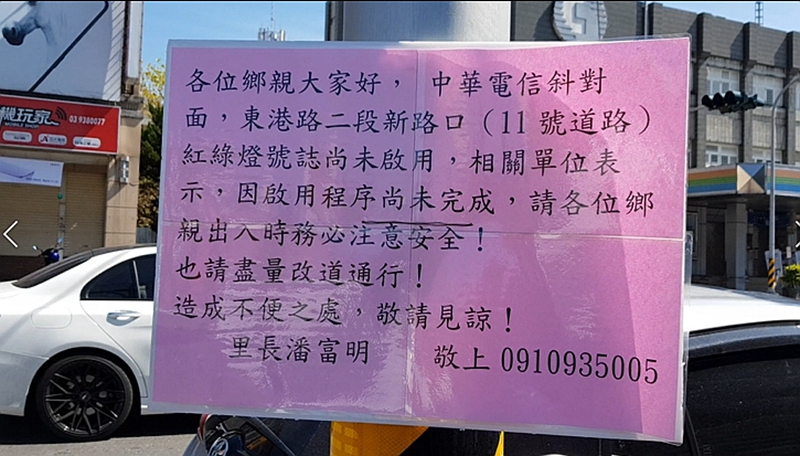 各位鄉親大家好， 中華電信斜對
面，東港路二段新路口（11 號道路）
紅綠燈號誌尚未啟用，相關單位表
示，因啟用程序尚未完成，請各位鄉
親出入時務必注意安全！
也請盡量改道通行！
造成不便之處，敬請見諒！
里長潘富明 敬上 0910935005
機玩家
03 9380077